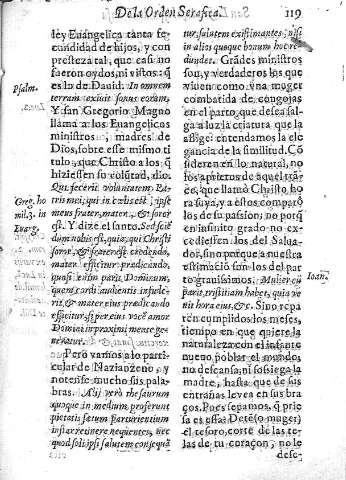 De la Orden Serafica. 119
ley Euangelica tanta fe-
cundidad de hijos, y con
presteza tal, que casi no
fueron oydos, ni vistos: q̃
es lo de Dauid. In omnem
terram exiuit sonus eorum,
Y san Gregorio Magno
llama a los Euangelicos
ministros, madres de
Dios, sobre esse mismo ti
tulo, que Christo a los q̃
hiziessen su volũtad, dio.
Qui fecerit voluntatem Pa-
tris mei, qui in cœlis est, ipse
meus frater, mater, & soror
est. Y dize el santo. Sed scie
dum nobis est, quia, qui Christi
soror, & frater est credendo,
mater efficitur prædicando.
quasi enim parit Dominum,
quem cordi audientis infude-
rit, & mater eius prædicando
efficitur, si per eius vocē amor
Domini in proximi mente ge-
neratur.
Pero vamos a lo parti-
cular de Nazianzeno, y
notense mucho sus pala-
bras. Alij verò thesaurum
quoque in medium proferunt
pietatis fœtum parturientium
instar tenere nequeuntes, nec
quod soli ipsi salutem consequã
Psalm.
Greg. ho
mil. 3. in
Euang.
tur, salutem existimantes, nisi
in alios quoque bonum hoc re
dundet. Grãdes ministros
son, y verdaderos los que
viuen como vna muger
combatida de congojas
en el parto, que dessea sal-
ga a luz la criatura que la
aflige: entendamos la ele
gancia de la similitud. Cõ
sideren en lo natural, no
los aprietos de aquel trã-
ce, que llamò Christo ho
ra suya, y a estos comparò
los de su passion, no porq̃
en infinito grado no ex-
cediessen los del Salua-
dor, sino porque a nuestra
estimaciõ son los del par
to grauissimos. Mulier cũ
parit, tristitiam habet, quia ve
nit hora eius, &c. Sino repa
ren cumplidos los meses,
tiempo en que quiere la
naturaleza con el infante
nueuo poblar el mundo,
no descansa, ni sossiega la
madre, hasta que de sus
entrañas le vea en sus bra
ços. Pues sepamos, q̃ prie
sa es essa? Detẽ (o muger)
el tesoro, corte de las te-
las de tu coraçon, no le
Ioan.
desc-